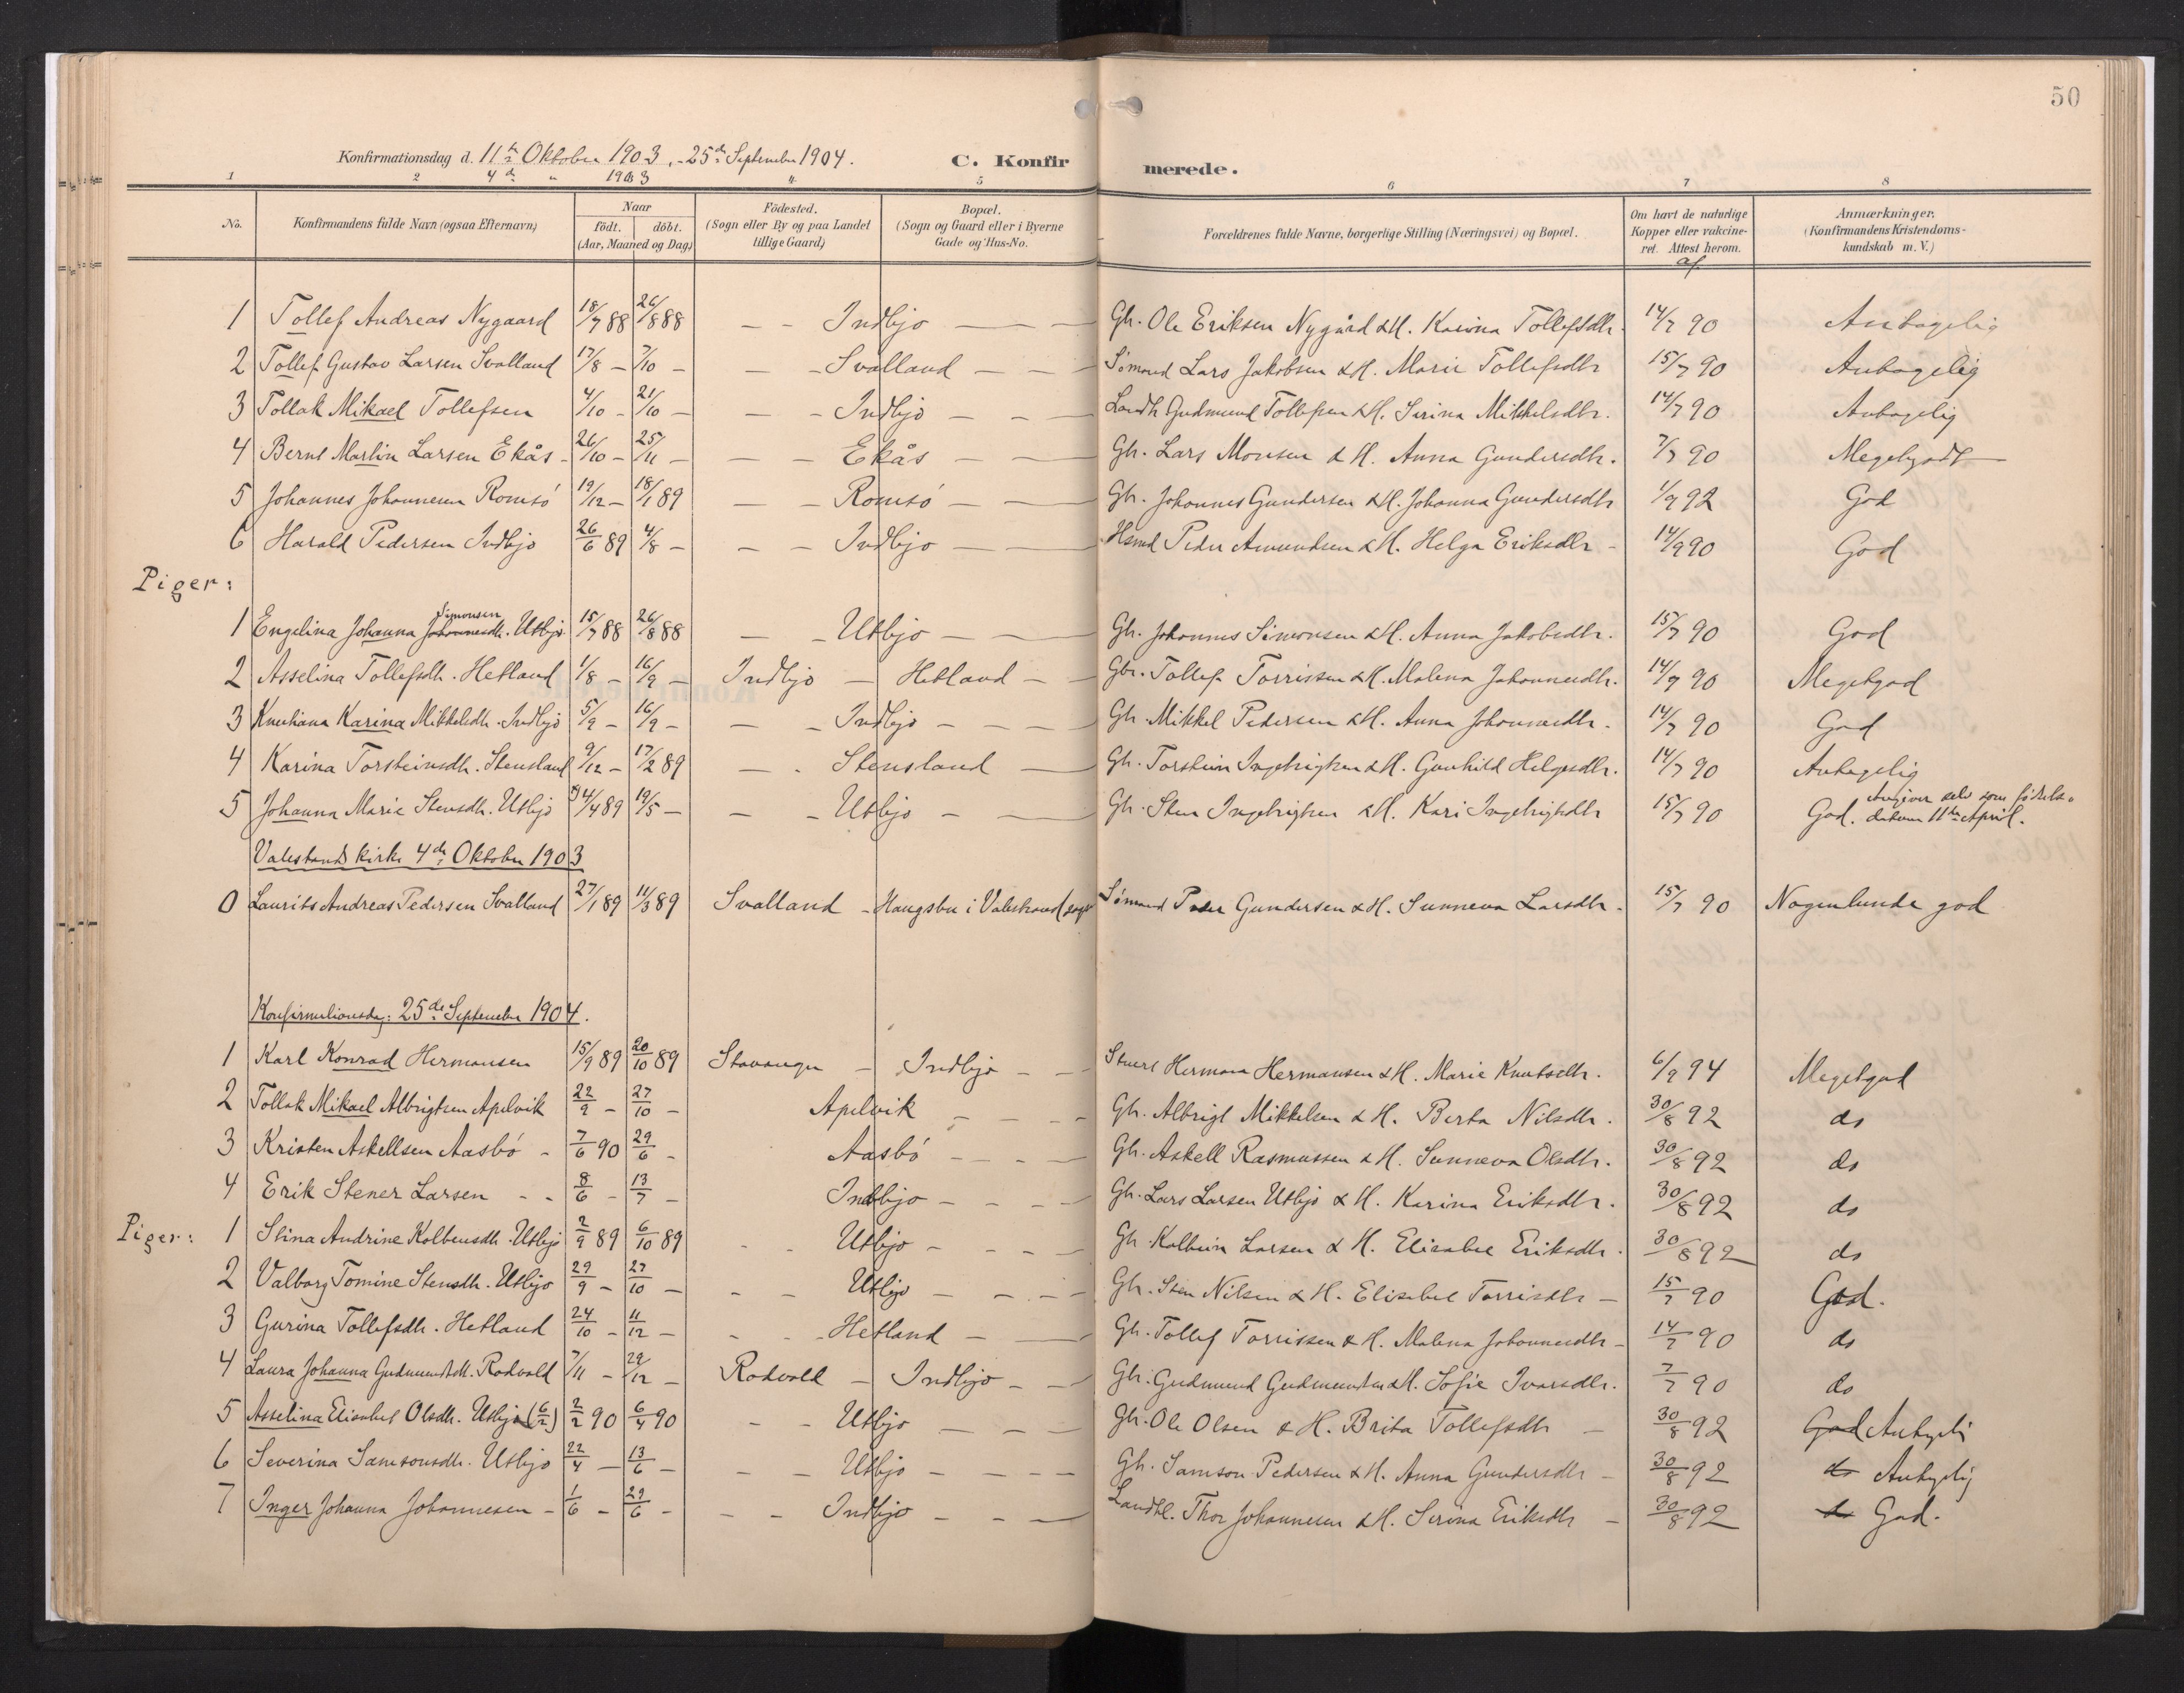 50
Konfirmationsdag d. 11te Oktober 1903, - 25de September 1904. C. Konfirmerede.
4de " 1903
1 2 4 5 6 7 8
No. Konfirmandens fulde Navn (ogsaa Efternavn) Naar født. døbt. (Aar, Maaned og Dag) Födested. (Sogn eller By og paa Landet tillige Gaard) Bopæl. (Sogn og Gaard eller i Byerne Gade og Hus-No. Forældrenes fulde Navne, borgerlige Stilling (Næringsvei) og Bopæl. Om havt de naturlige Kopper eller vakcineret. Attest herom. af. Anmærkninger. (Konfirmandens Kristendomskundskab m. V.)
1 Tollef Andreas Nygaard 18/7 88 26/8 88 — — Indbjo — — — Gbr. Ole Eriksen Nygård & H. Karina Tollefsdtr. 14/7 90 Antagelig
2 Tollef Gustav Larsen Svolland 17/8 — 7/10 — — — Svolland — — — Sömand Lars Jakobsen & H. Marie Tollefsdtr 15/7 90 Antagelig
3 Tollak Mikael Tollefsen 4/10 - 21/10 — — — Indbjo — — — Landh Gudmund Tollefsen & H. Serina Mikkelsdtr. 14/7 90 Antagelig
4 Bernt Martin Larsen Ekås - 26/10 — 25/11 — — — Ekås — — Gbr. Lars Monsen & H. Anna Gundersdtr. 7/7 90 Megetgodt
5 Johannes Johannesen Romsö 19/12 — 18/1 89 — — Romsö — — Gbr. Johannes Gundersen & H. Johanna Gundersdtr 1/9 92 God
6 Harald Pedersen Indbjo 26/6 89 4/8 — — — Indbjo — — Hsmd Peder Amundsen & H. Helga Eriksdtr - 14/9 90 God
Piger:
1 Engelina Johanna Johannesdtr. Simonsen Utbjo 15/7 88 26/8 88 — — Utbjo — — Gbr. Johannes Simonsen & H. Anna Jakobsdtr. 15/7 90 God
2 Asselina Tollefsdtr. Hetland 1/8 — 16/9 — Indbjo — Hetland — — Gbr. Tollef Torrissen & H. Malena Johannesdtr. 14/7 90 Megetgod
3 Knutiana Karina Mikkelsdtr. Indbjo 5/9 — 16/9 — — — Indbjo — — — Gbr. Mikkel Pedersen & H. Anna Johannesdtr. 14/7 90 God
4 Karina Torsteinsdtr. Stensland 9/12 — 17/2 89 — - Stensland — Gbr. Torstein Ingebrigtsen & H. Gunhild Helgesdtr. 14/7 90 Antagelig
5 Johanna Marie Stensdtr. Utbjo 4/4 89 19/5 — — — Utbjo — — Gbr. Sten Ingebrigtsen & H. Kari Ingebrigtsdtr 15/7 90 God. Angiver selv som födselsdatum 11te April.
Valestrands kirke 4de Oktober 1903
0 Laurits Andreas Pedersen Svolland 27/1 89 11/3 89 Svolland — Haugsbu i Valestrand sogn Sömand Peder Gundersen & H. Sunneva Larsdtr. 15/7 90 Nogenlunde god
Konfirmationsdag: 25de September 1904.
1 Karl Konrad Hermansen 15/9 89 20/10 89 Stavanger — Indbjo — — Stuert Herman Hermansen & H. Marie Knutsdtr. 6/9 94 Megetgod
2 Tollak Mikael Albrigtsen Apelvik 22/9 — 27/10 — Apelvik — — — Gbr. Albrigt Mikkelsen & H. Berta Nilsdtr. 30/8 92 do
3 Kristen Askellsen Aasbö - 7/6 90 29/6 - Aasbö — — — Gbr. Askell Rasmussen & H. Sunneva Olsdtr. 30/8 92 do
4 Erik Stener Larsen - - 8/6 - 13/7 — Indbjo — — — Gbr. Lars Larsen Utbjo & H. Karina Eriksdtr. 30/8 92 do
Piger: 1 Stina Andrine Kolbensdtr. Utbjo 2/9 89 6/10 89 - - Utbjo — — — Gbr. Kolbein Larsen & H. Elisabet Eriksdtr. 30/8 92 do
2 Valborg Tomine Stensdtr. Utbjo 29/9 — 27/10 — - - Utbjo — — — Gbr. Sten Nilsen & H. Elisabet Torrisdtr — 15/7 90 God.
3 Gurina Tollefsdtr. Hetland 24/10 — 11/12 — - - Hetland — — Gbr. Tollef Torrissen & H. Malena Johannesdtr — 14/7 90 do
4 Laura Johanna Gudmundsdtr. Rodvold 7/11 — 29/12 — Rodvold — Indbjo — — Gbr. Gudmund Gudmundsen & H. Sofie Ivarsdtr. 7/7 90 do
5 Asselina Elisabet Olsdtr. Utbjo (6/2) 2/2 90 6/4 90 - - Utbjo — — — Gbr. Ole Olsen & H. Brita Tollefsdtr — 30/8 92 God Antagelig
6 Severina Samsonsdtr. Utbjo 22/4 — 13/6 — — — Utbjo — — — Gbr. Samson Pedersen & H. Anna Gundersdtr — 30/8 92 do Antagelig
7 Inger Johanna Johannesen - 1/6 — 29/6 - — — Indbjo — — — Landhl. Thor Johannesen & H. Serina Eriksdtr — 30/8 92 do God.